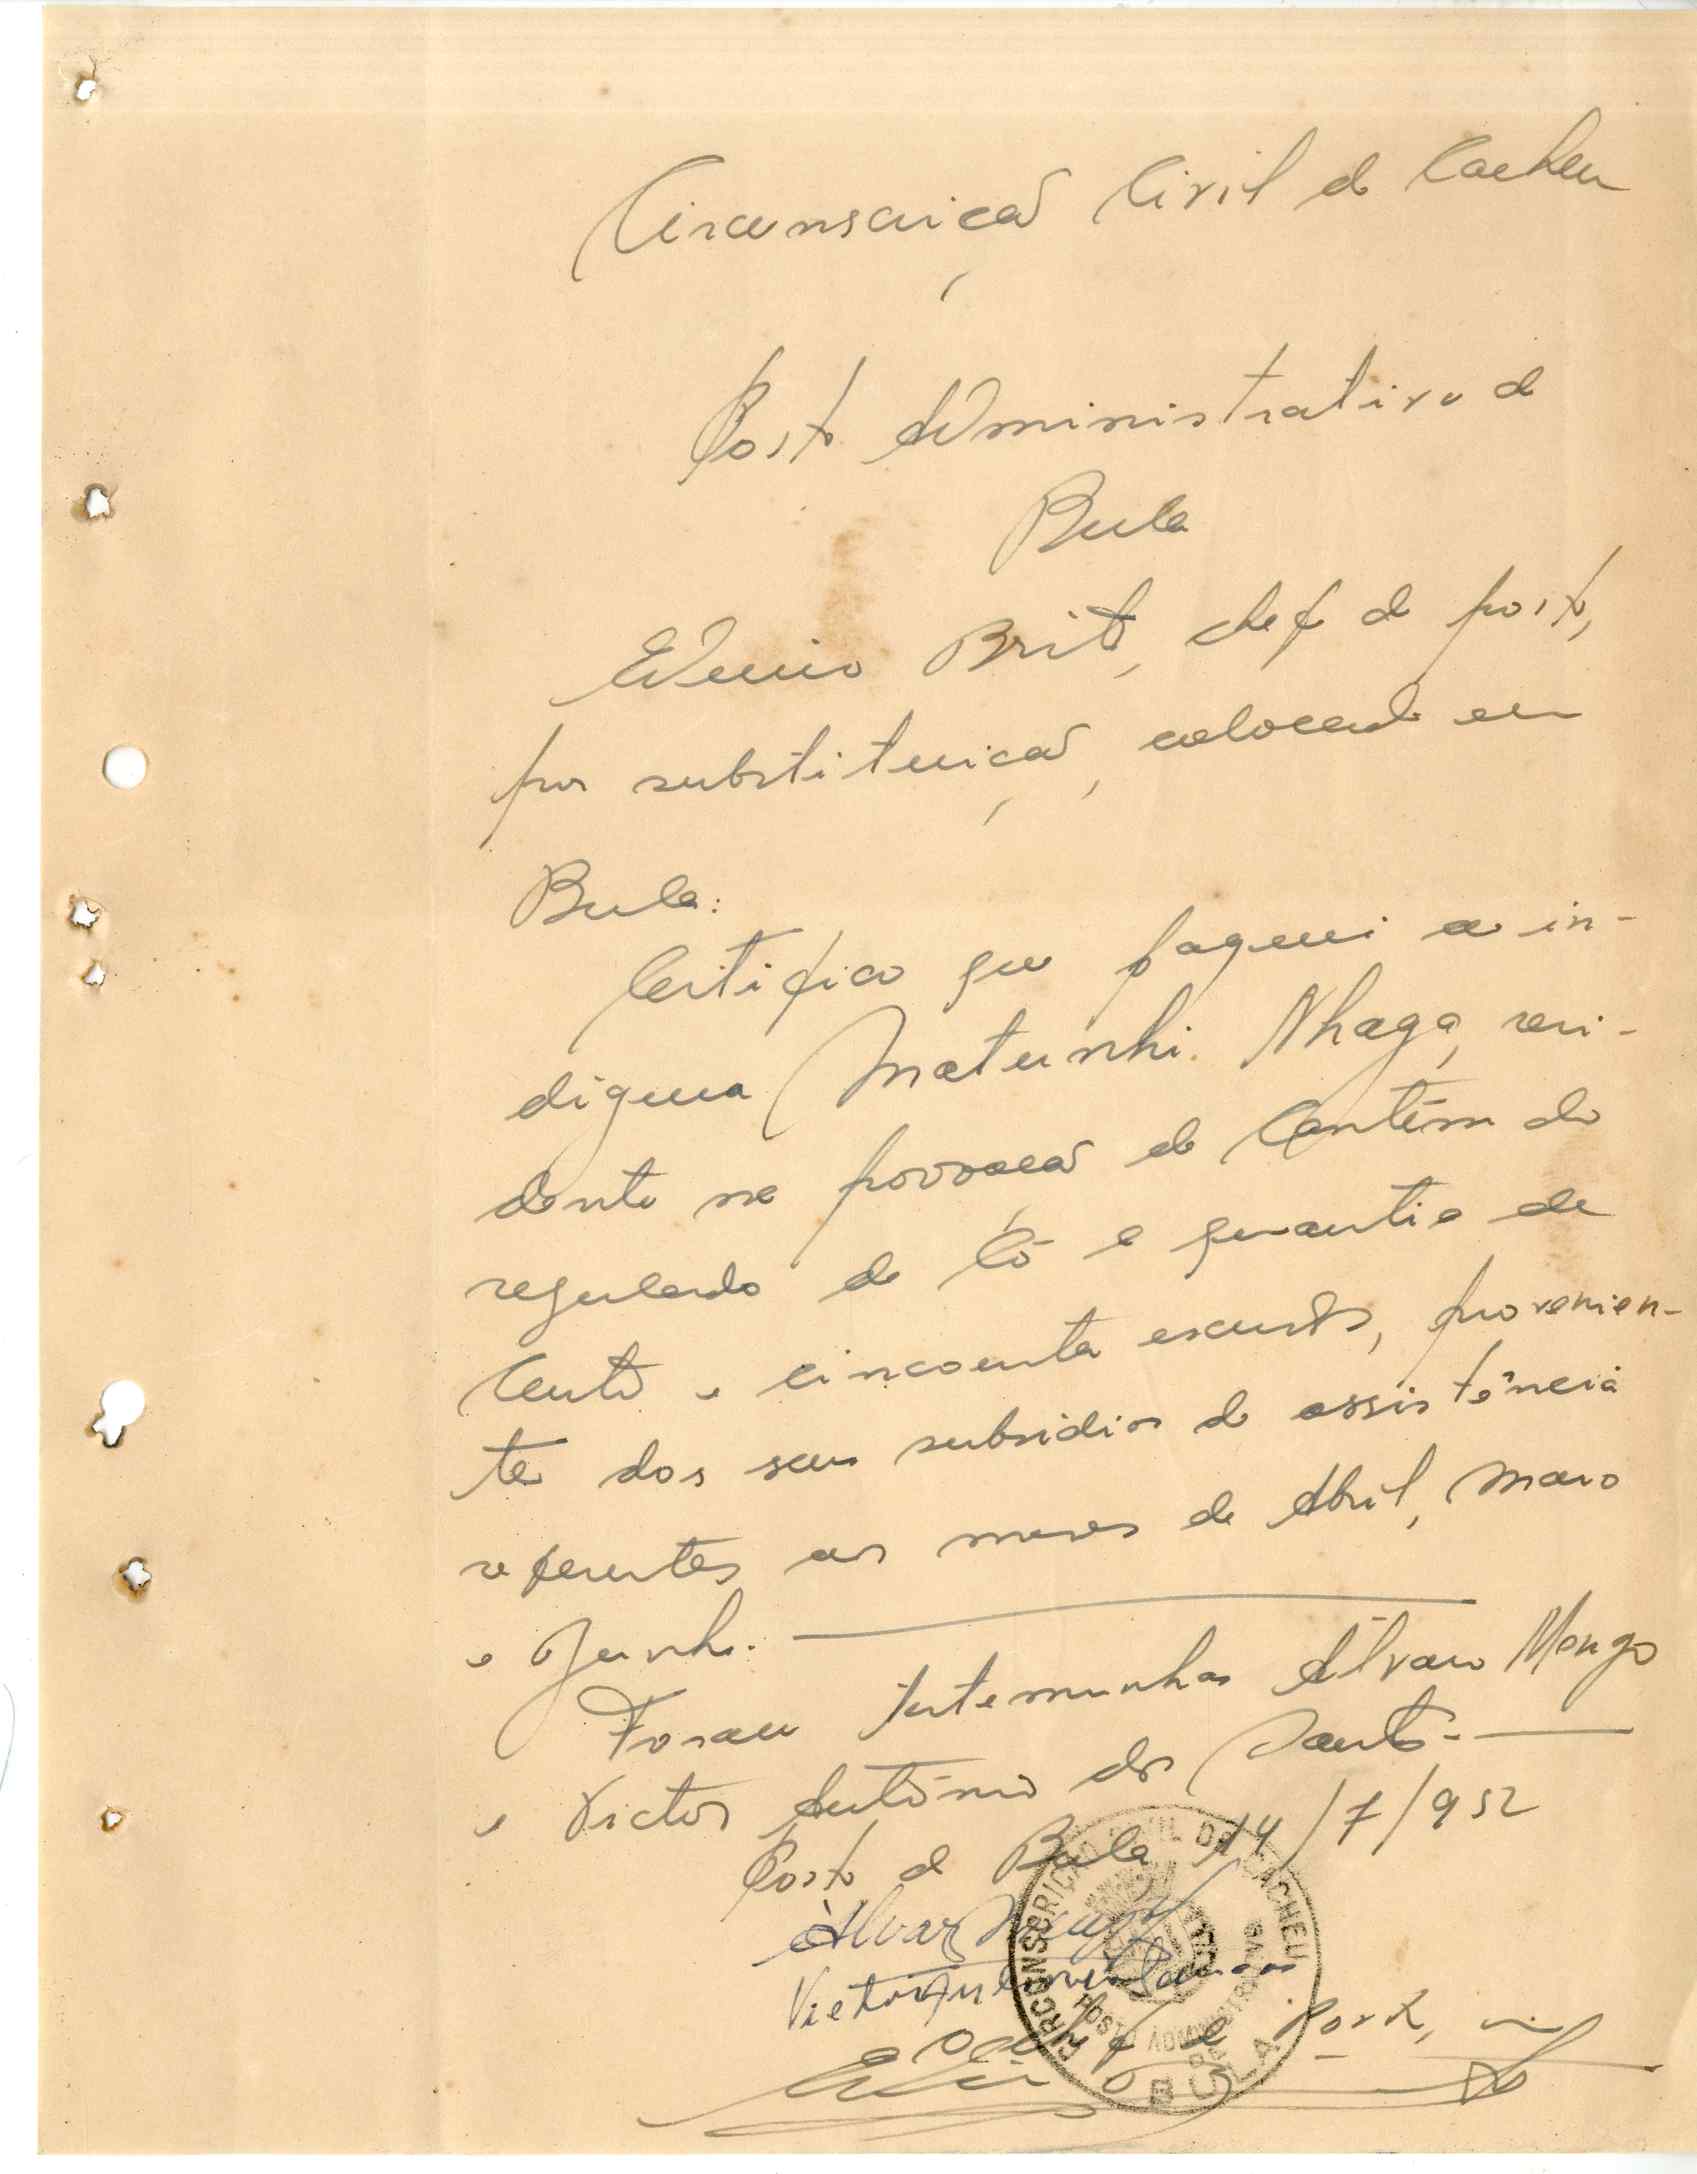 Circunscrição Civil de Cacheu
Posto Administrativo de
Bula
Brito, chefe de posto,
por substituição, colocado em
Bula:
Certifico que paguei ao in-
digena Matunhi Nhaga, resi-
dente na povoação de Cantém do
regulado de Có a quantia de
Cento e cincoenta escudos, provenien-
te dos seus subsidios de assistência
referentes aos meses de Abril, Maio
e Junho.
Foram testemunhas Álvaro Mango
e Victor António dos Santos.
Posto de Bula, 14/7/952
Álvaro
Victor António Santos
O chefe de Posto,
CIRCONSCRIÇÃO CIVIL DE CACHEU
POSTO ADMINISTRATIVO
DE
BULA